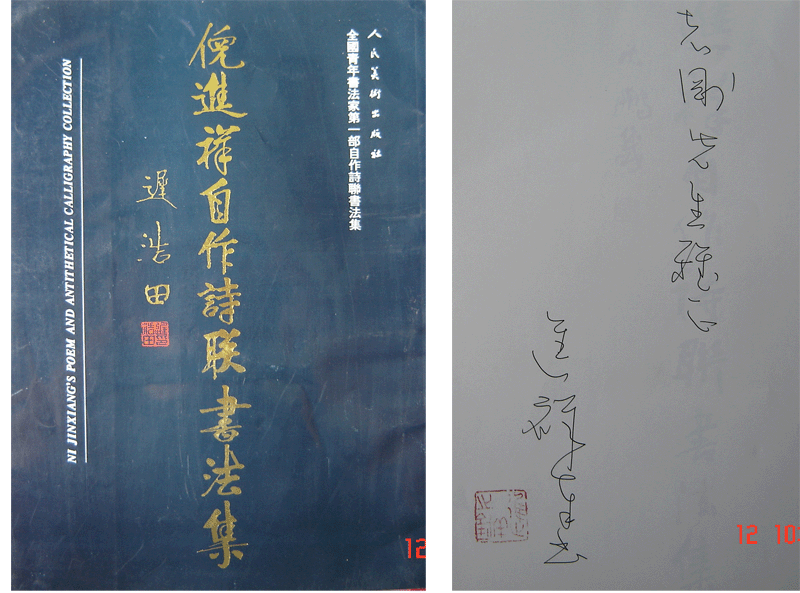 人民美術出版社
全國青年書法家第一部自作詩聯書法集
倪進祥自作詩联書法集
遲浩田
NI JINXIANG'S POEM AND ANTITHETICAL CALLIGRAPHY COLLECTION
12
志剛先生雅正
進祥
12 10